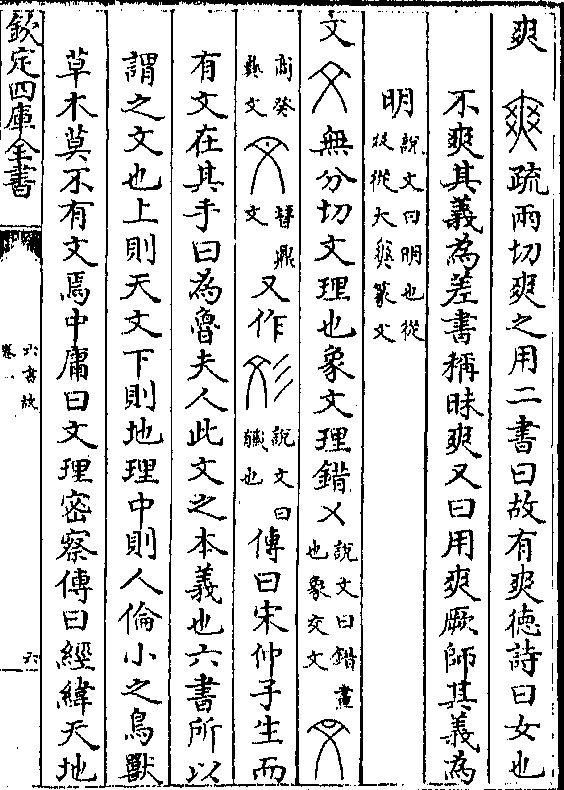 爽疏兩切爽之用二書曰故有爽徳詩曰女也
不爽其義為差書稱昧爽又曰用爽厥師其義為
明說文曰明也從㸚從大篆文
文無分切文理也象文理錯乂說文曰錯畫也象交文
商癸彝文鼎文又作說文曰也傳曰宋仲子生而
有文在其手曰為魯夫人此文之本義也六書所以
謂之文也上則天文下則地理中則人倫小之鳥獸
草木莫不有文焉中庸曰文理密察傳曰經緯天地
欽定四庫全書
六書故
卷一
六